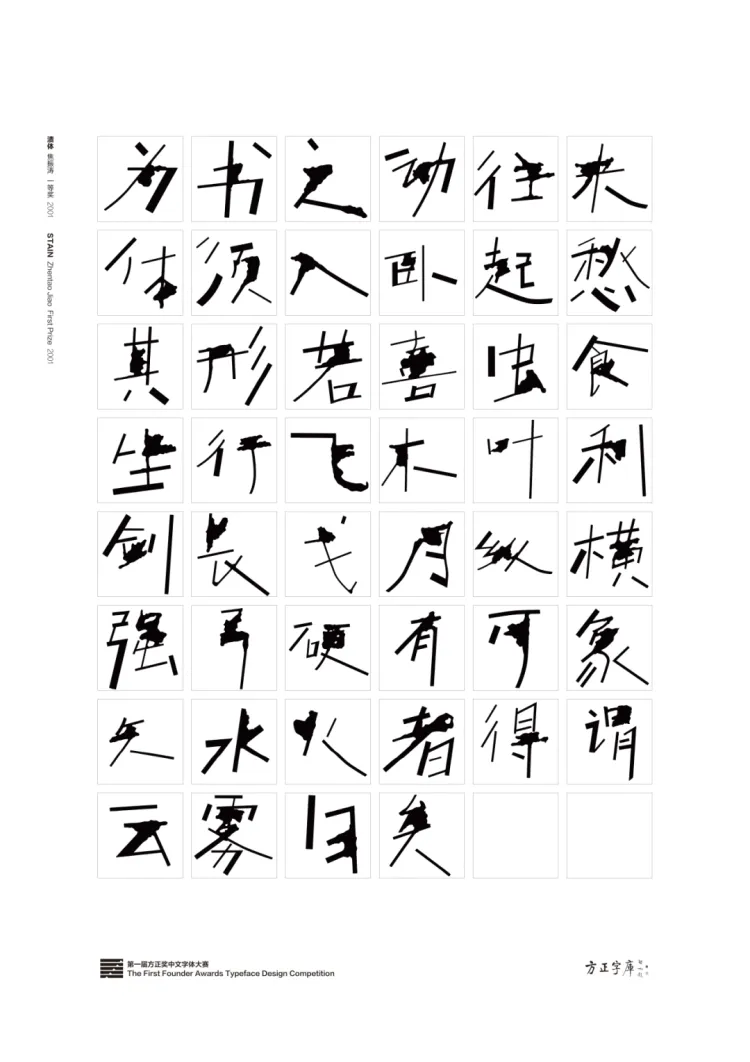 渍体 焦振涛 一等奖 2001
STAIN Zhentao Jiao First Prize 2001
为书之动往来
体须入卧起愁
其形若喜虫食
坐行飞木叶利
剑长戈月纵横
强弓硬有可象
矢水火者得谓
云雾日矣
第一届方正奖中文字体大赛
The First Founder Awards Typeface Design Competition
方正字庫